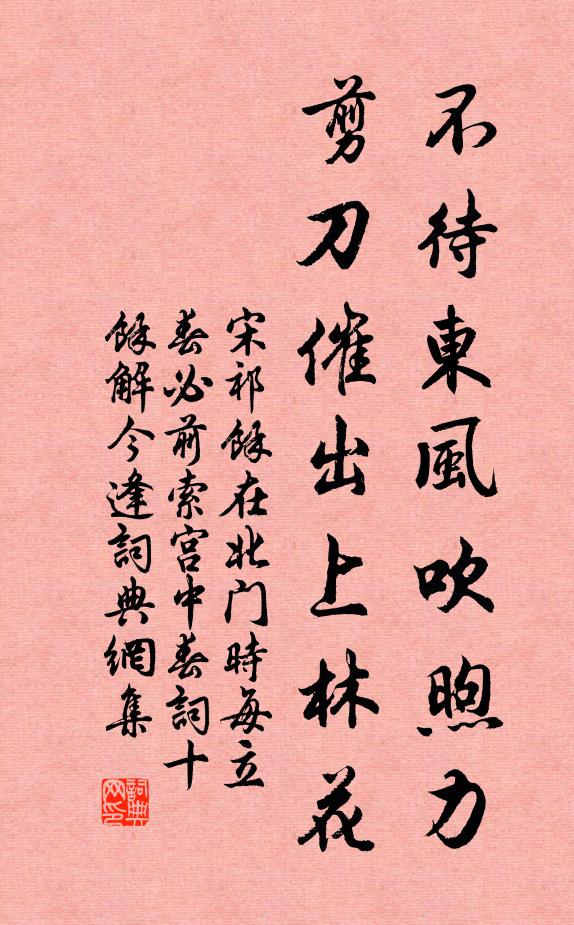 不待東風吹煦力
剪刀催出上林花
宋祁餘在北门時每立
春必前索宫中春詞十
餘解今逢詞典網集
詞典网印